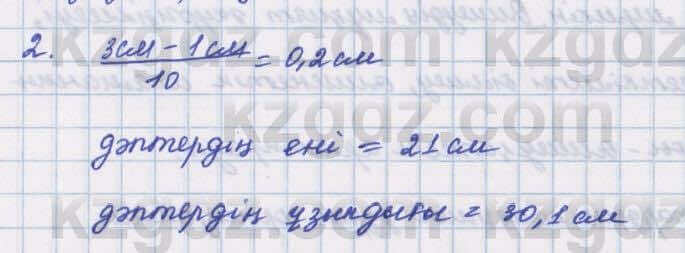 2. (3см - 1см)/10 = 0,2см
дәптердің ені = 21см
дәптердің ұзындығы = 30,1см